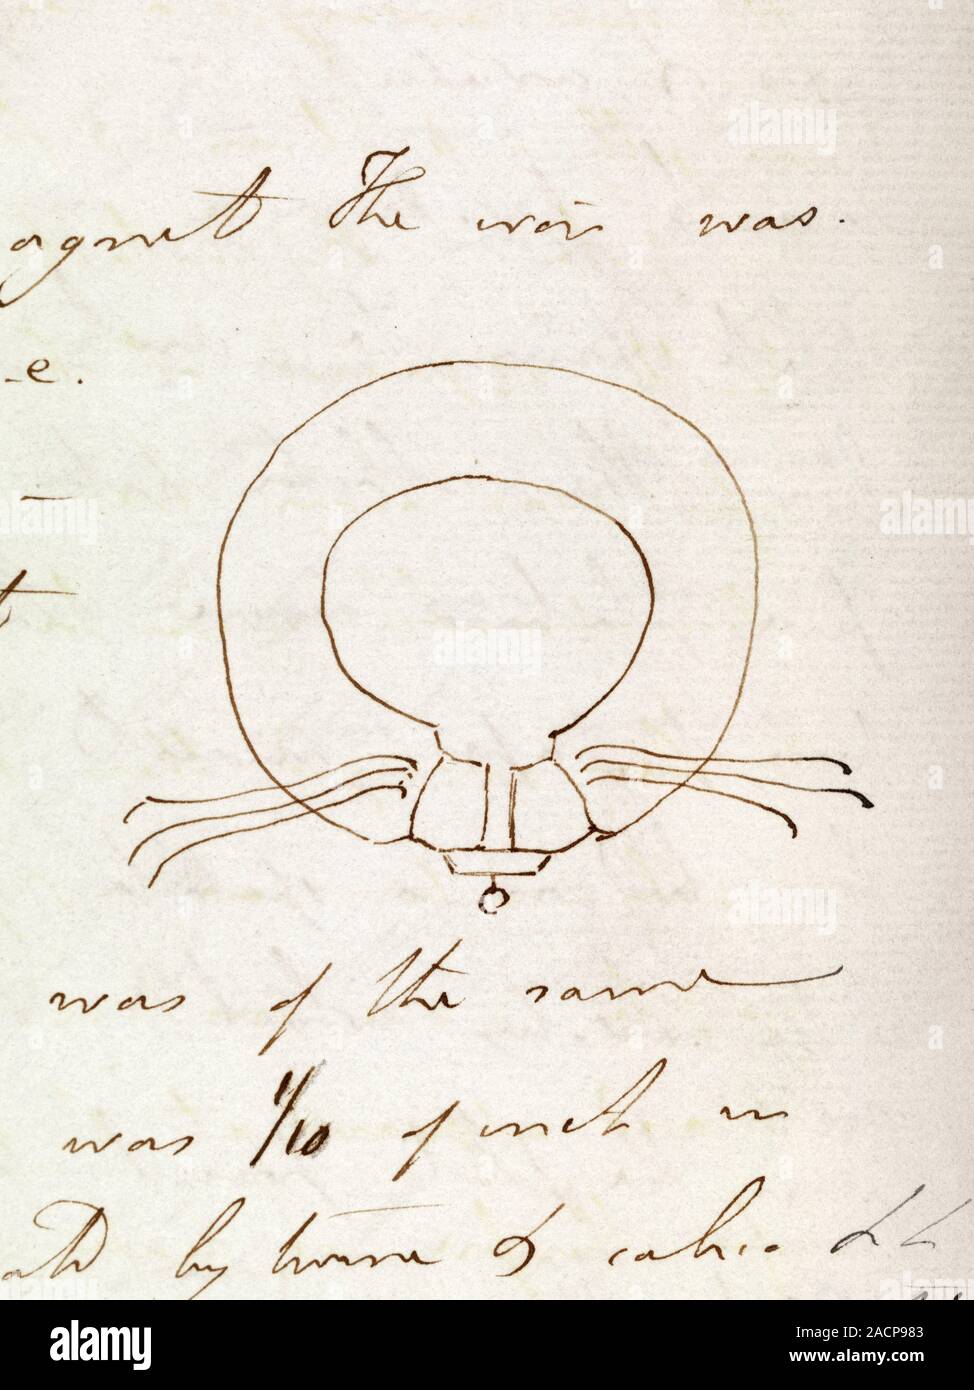 agnet The iron was.
e.
t
was of the same
was 1/10 of inch in
by twine & calico &c
alamy
Image ID: 2ACP983
www.alamy.com